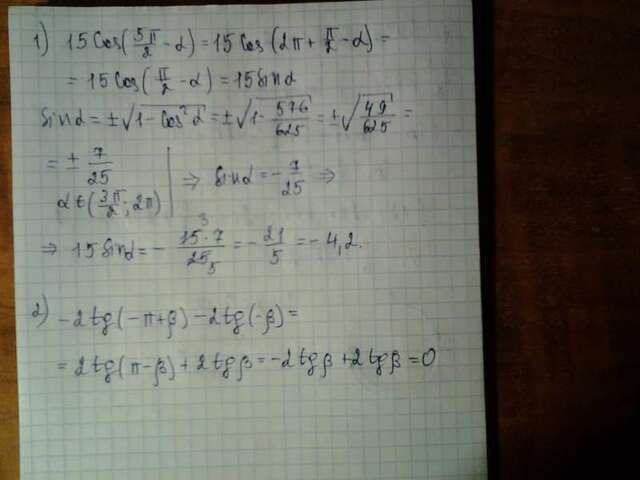 1) 15 Cos(5π/2 - α) = 15 Cos(2π + π/2 - α) =
= 15 Cos(π/2 - α) = 15 sin α
sin α = ±√(1 - Cos² α) = ±√(1 - 576/625) = ±√(49/625) =
= ± 7/25
α ∈ (3π/2; 2π) | ⇒ sin α = - 7/25 ⇒
⇒ 15 sin α = - 15·7/25 3 5 = - 21/5 = - 4,2.
2) -2 tg(-π+β) - 2 tg(-β) =
= 2 tg(π-β) + 2 tg β = -2 tg β + 2 tg β = 0